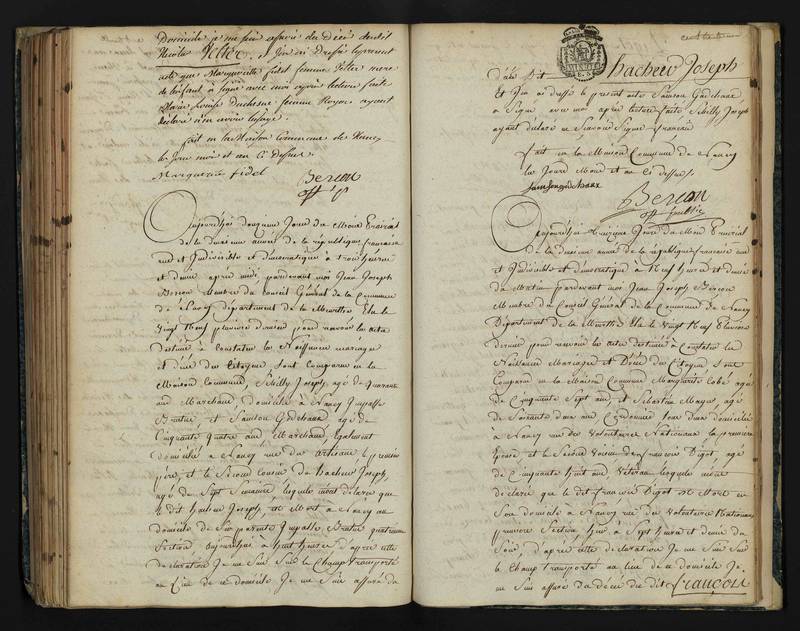 Domicile je me suis assuré du Décé dudit
Nicolas Velter. J'en dai Dressé le present
acte que Margueritte fidel femme Velter mere
de l'enfant a signé avec moi aprés lecture faite
Marie Louise Duchesne femme Royer ayant
declaré n'en avoir l'usage.
fait en la Maison Commune de Nancy
les Jour mois et an Ci Dessus.
Marguerite fidel Berson
off. p.
Aujourdhui douzieme Jour du Mois Prairial
de la deuxieme année de la république francaise
une et Indivisible et démocratique à trois heures
et demie aprés midi pardevant moi Jean Joseph
Berson Membre du Conseil Général de la Commune
de Nancy département de la Meurthe Elu le
Vingt Neuf pluviose dernier pour recevoir les actes
destinés à Constater les Naissances mariages
et décés des Citoyens Sont Comparus en la
Maison Commune, Schilly Joseph, agé de quarante
ans Marchand domicilié à Nancy Impasse
Brutus, et Samson Godchaux agé de
Cinquante quatre ans Marchand, Egalement
domicilié à Nancy rue des artisans le premier
père, et le Second Cousin de hacheu Joseph,
agé de Sept Semaines lesquels m'ont déclaré que
le dit hacheu Joseph, est Mort à Nancy au
domicile de Ses parents Impasse Brutus quatrieme
Section aujourdhui à huit heures d'aprés cette
declaration Je me Suis Sur le Champ transporté
au lieu de ce domicile Je me Suis assuré du
décés dudit hacheu Joseph
Et J'en ai dressé le present acte Samson Godchaux
a Signé avec moi aprés lecture faite Schilly Joseph
ayant déclaré ne Scavoir Signer francais
fait en la Maison Commune de Nancy
les Jours Mois et an ci dessus.
Berson
off. public
Aujourdhui treizieme Jour du Mois Prairial
de la deuxieme année de la république francaise une
et Indivisible et démocratique à Neuf heures et demie
du Matin pardevant moi Jean Joseph Berson
Membre du Conseil Général de la Commune de Nancy
Département de la Meurthe Elu le Vingt Neuf Pluviose
dernier pour recevoir les actes destinés à Constater les
Naissances Mariages et Décés des Citoyens, Sont
Comparus en la Maison Commune Margueritte Cobé agée
de Cinquante Sept ans, et Sebastien Mayer, agé
de Soixante deux ans Cordonnier tous deux domiciliés
à Nancy rue des Volontaires Nationaux la premiere
Epouse et le Second Voisin de francois Digot, agé
de Cinquante huit ans Véteran lesquels m'ont
declaré que le dit francois Digot est Mort en
Son domicile à Nancy rue des Volontaires Nationaux
premiere Section, hier à Sept heures et demie du
Soir, d'aprés cette déclaration Je me Suis Sur
le Champ transporté au lieu de ce domicile Je
me Suis assuré du décés du dit francois